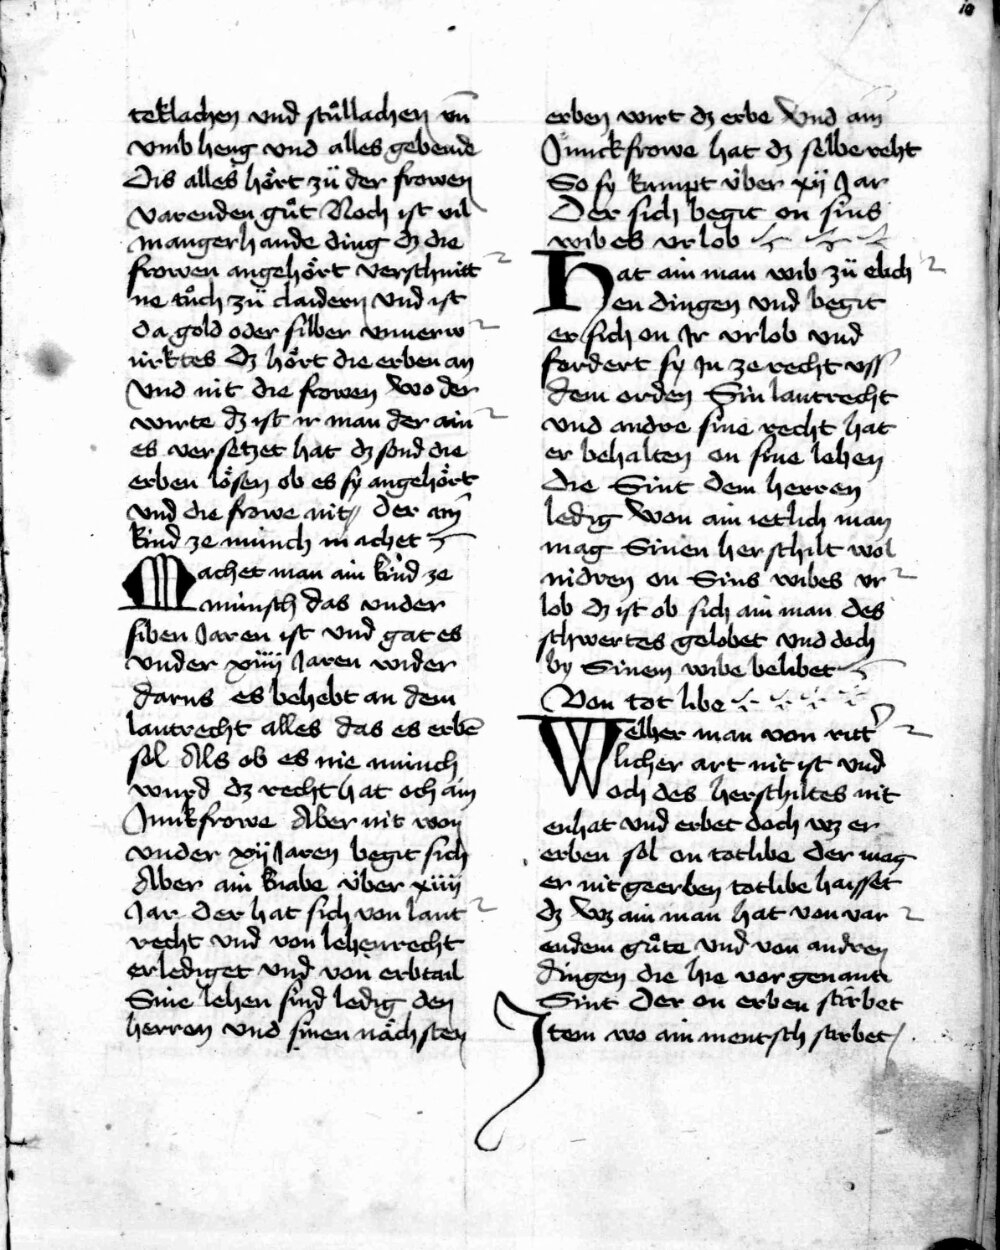 10
teklachen und stůllachen vn̄
vmb heng vnd alles gebende
Dis alles hört zü der frowen
varenden gůt Noch ist vil
mangerhande ding dz die
frowen angehört verschnitt
ne tůch zü claidern vnd ist
da gold oder silber vnuerw
ürktes Dz hört die erben an
vnd nit die frowen Wo der
wirte dz ist ir man der ain
es versetzet hat dz sond die
erben lösen ob es sy angehört
vnd die frowe nit Der ain
kind ze münch machet
Machet man ain kind ze
münsch das vnder
siben Jaren ist vnd gat es
vnder xiiij Jaren wider
darus es behebt an dem
lantrecht alles das es erbē
sol Als ob es nie münch
wurd dz recht hat och ain
Junkfrowe Aber nit won
vnder xij Jaren begit sich
Aber ain knabe über xiiij
Jar der hat sich von lant
recht vnd von lehenrecht
erlediget vnd von erbtail
Sine lehen sind ledig den
herren vnd sinen nächsten
erben wirt dz erbe Vnd ain
Junckfrowe hat dz selbe reht
So sy kumpt über xij Jar
Der sich begit on sins
wibes vrlob
Hat ain man wib zü elich
en dingen vnd begit
er sich on Jr vrlob vnd
fordert sy Jn ze recht vss
dem orden Sin lantrecht
vnd andre sine recht hat
er behalten on sine lehen
die Sint dem herren
ledig Won ain ietlich man
mag Sinen herschilt wol
nidren on Sins wibes vr
lob dz ist ob sich ain man des
schwertes gelobet vnd doch
by Sinem wibe belibet
Von tot libe
Welher man von ritt̉
licher art nit ist vnd
och des herschiltes nit
enhat vnd erbet doch wz er
erben sol on totlibe der mag
er nit geerben totlibe haisset
dz Wz ain man hat von var
endem gůte vnd von andren
dingen die hie vorgenant
Sint Der on erben stirbet
Jtem wo ain mentsch stirbet